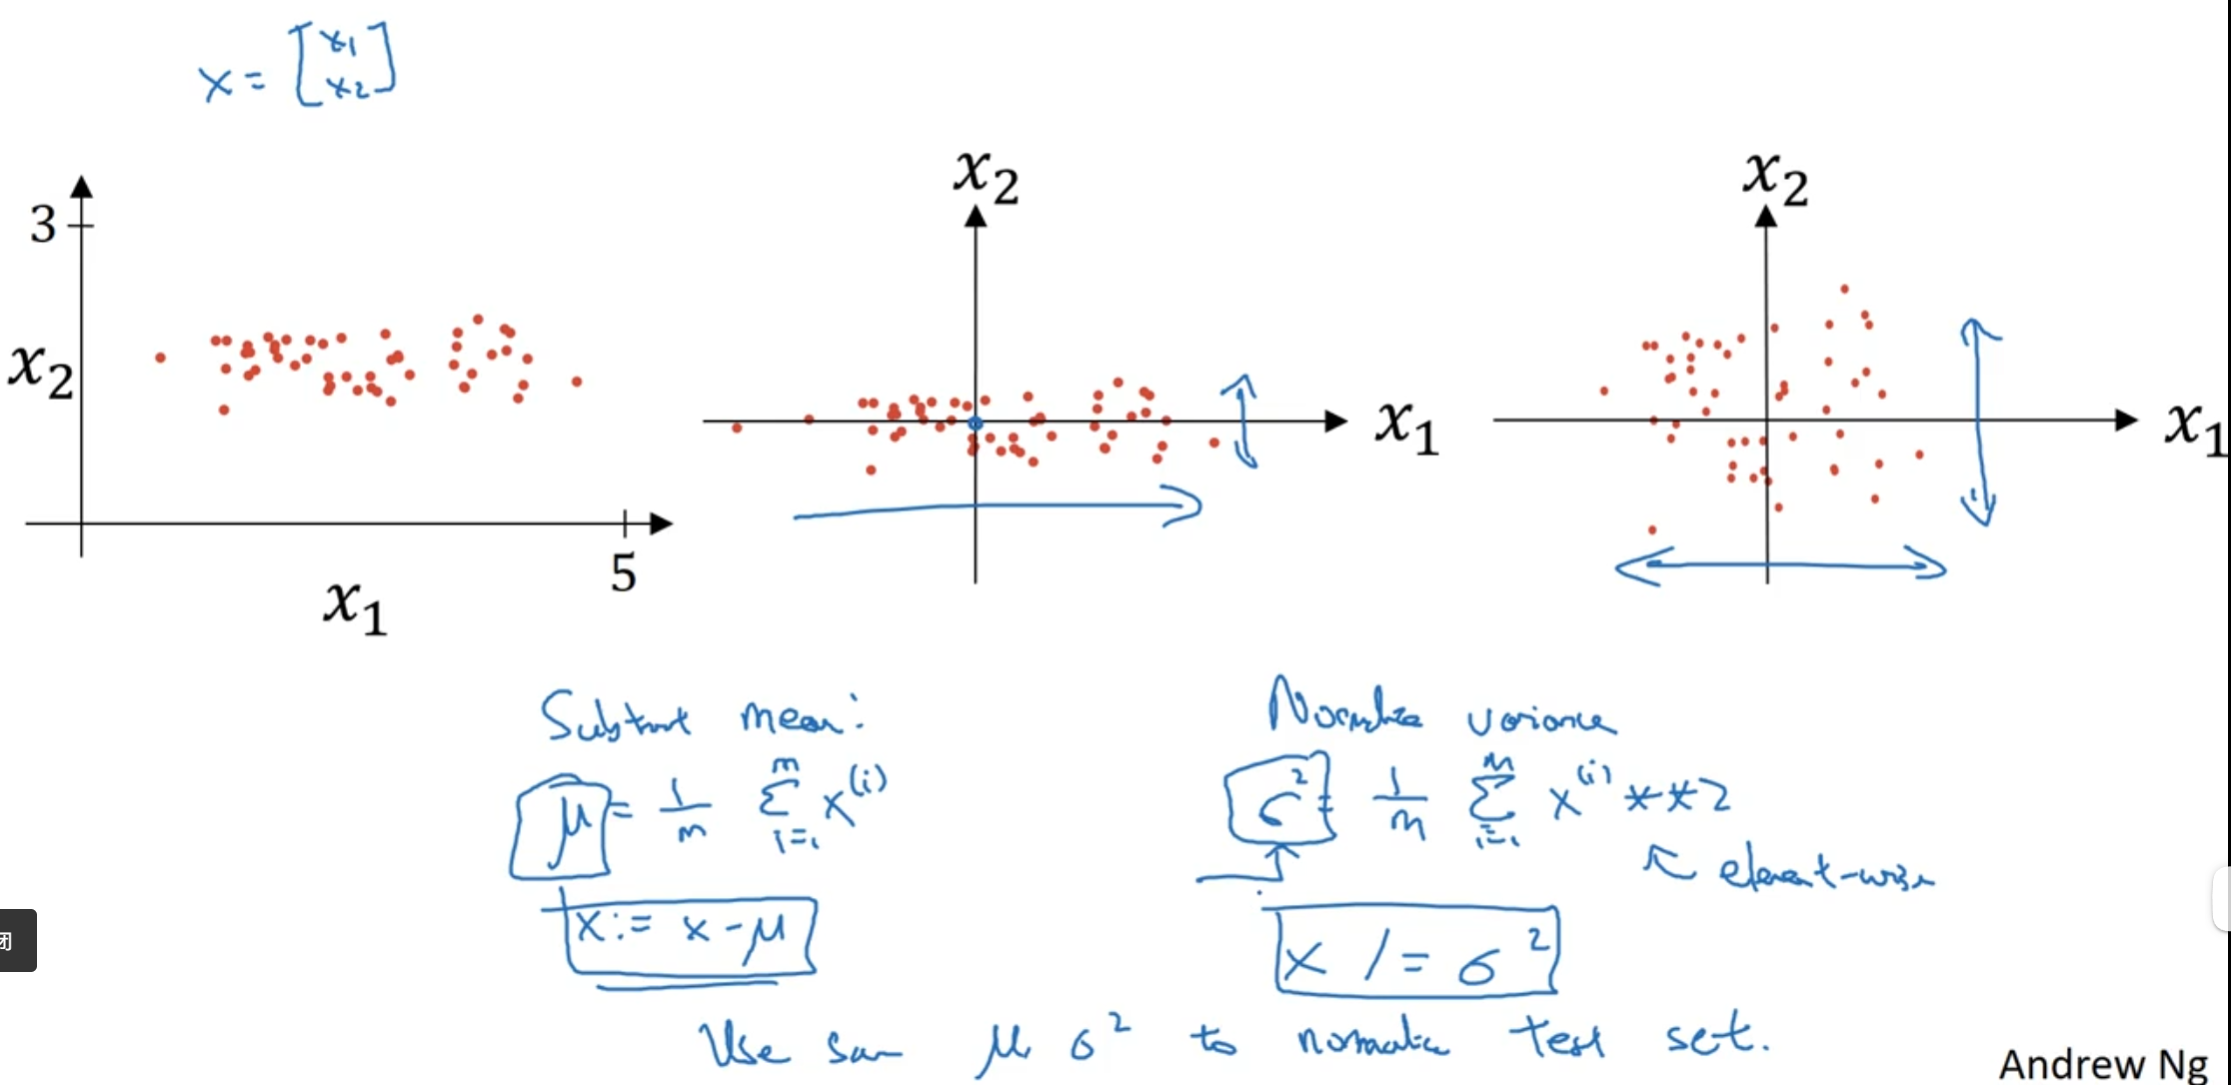 x = [x1
x2]
3
x2
x1
5
x2
x1
x2
x1
Subtract mean:
μ = 1/m Σ_{i=1}^{m} x^(i)
x := x - μ
Normalize variance
σ² = 1/m Σ_{i=1}^{m} x^(i) **2
← element-wise
x /= σ²
Use same μ, σ² to normalize test set.
Andrew Ng